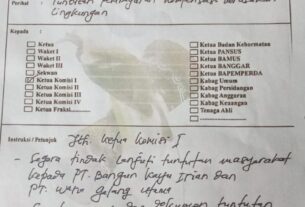 Perihal : Tuntutan
Lingkungan
Kepada :
Ketua
Waket I
Waket II
Sekwan
Ketua Komisi I
Ketua Komisi II
Ketua Komisi III
Ketua Komisi IV
Ketua Fraksi
Ketua Badan Kehormatan
Ketua PANSUS
Ketua BAMUS
Ketua BANGGAR
Ketua BAPEMPERDA
Kabag Umum
Kabag Persidangan
Kabag Anggaran
Kabag Keuangan
Tenaga Ahli
Instruksi / Petunjuk
Yth. Ketua Komisi I
- Segera tindak lanjuti tuntutan masyarakat
kepada PT. Bangun Kayu Irian dan
PT. Waru
tuntutan